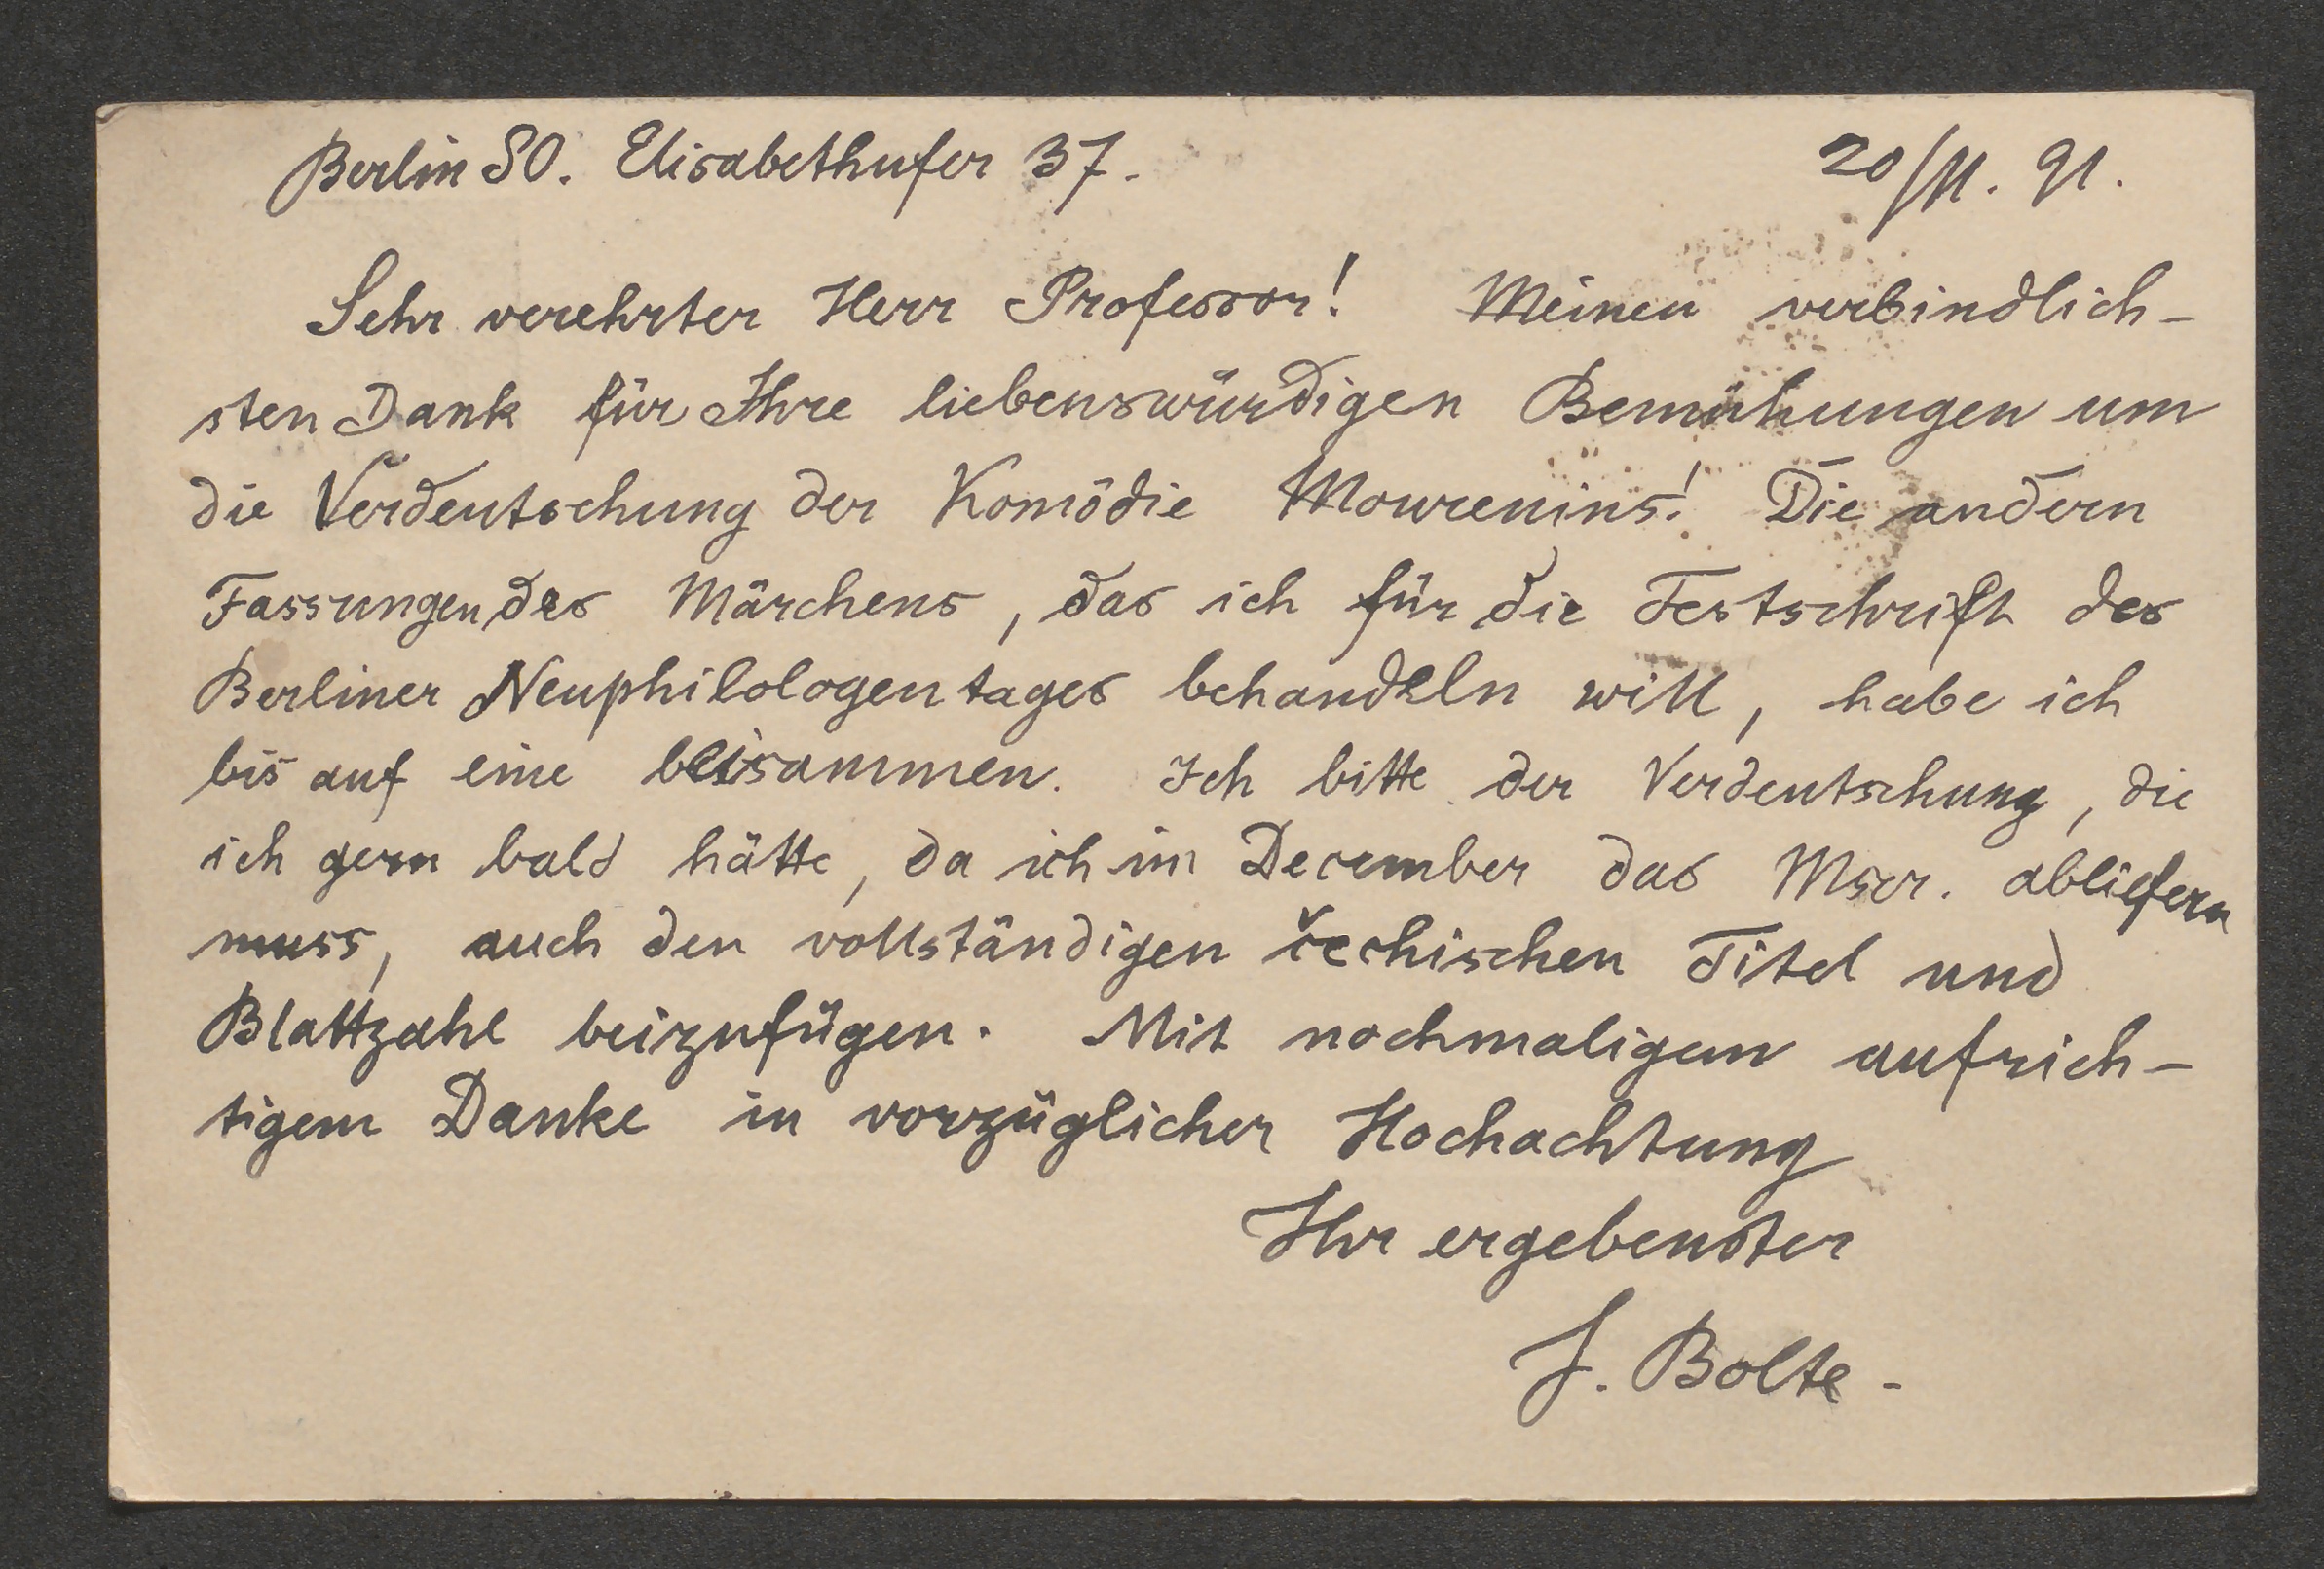 Berlin SO. Elisabethufer 37. 20/11. 91.
Sehr verehrter Herr Professor! Meinen verbindlich-
sten Dank für Ihre liebenswürdigen Bemühungen um
die Verdeutschung der Komödie Mourenins! Die andern
Fassungen des Märchens, das ich für die Festschrift des
Berliner Neuphilologentages behandeln will, habe ich
bis auf eine beisammen. Ich bitte der Verdeutschung, die
ich gern bald hätte, da ich im December das Mscr. abliefern
muss, auch den vollständigen čechischen Titel und
Blattzahl beizufügen. Mit nochmaligem aufrich-
tigem Danke in vorzüglicher Hochachtung
Ihr ergebenster
J. Bolte.